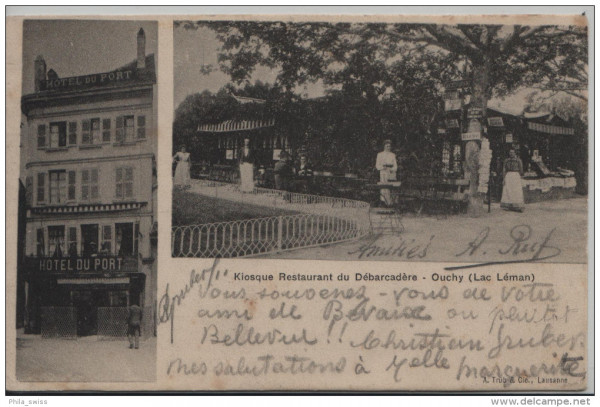 HÔTEL DU PORT
HÔTEL DU PORT
Amitiés A. Ruf
Kiosque Restaurant du Débarcadère - Ouchy (Lac Léman)
Vous souvenez-vous de votre
ami de ou plutôt
Bellevue !! Christian Gruber
mes salutations à Melle Marguerite
A. Trüb & Cie., Lausanne
Phila_swiss
www.delcampe.net